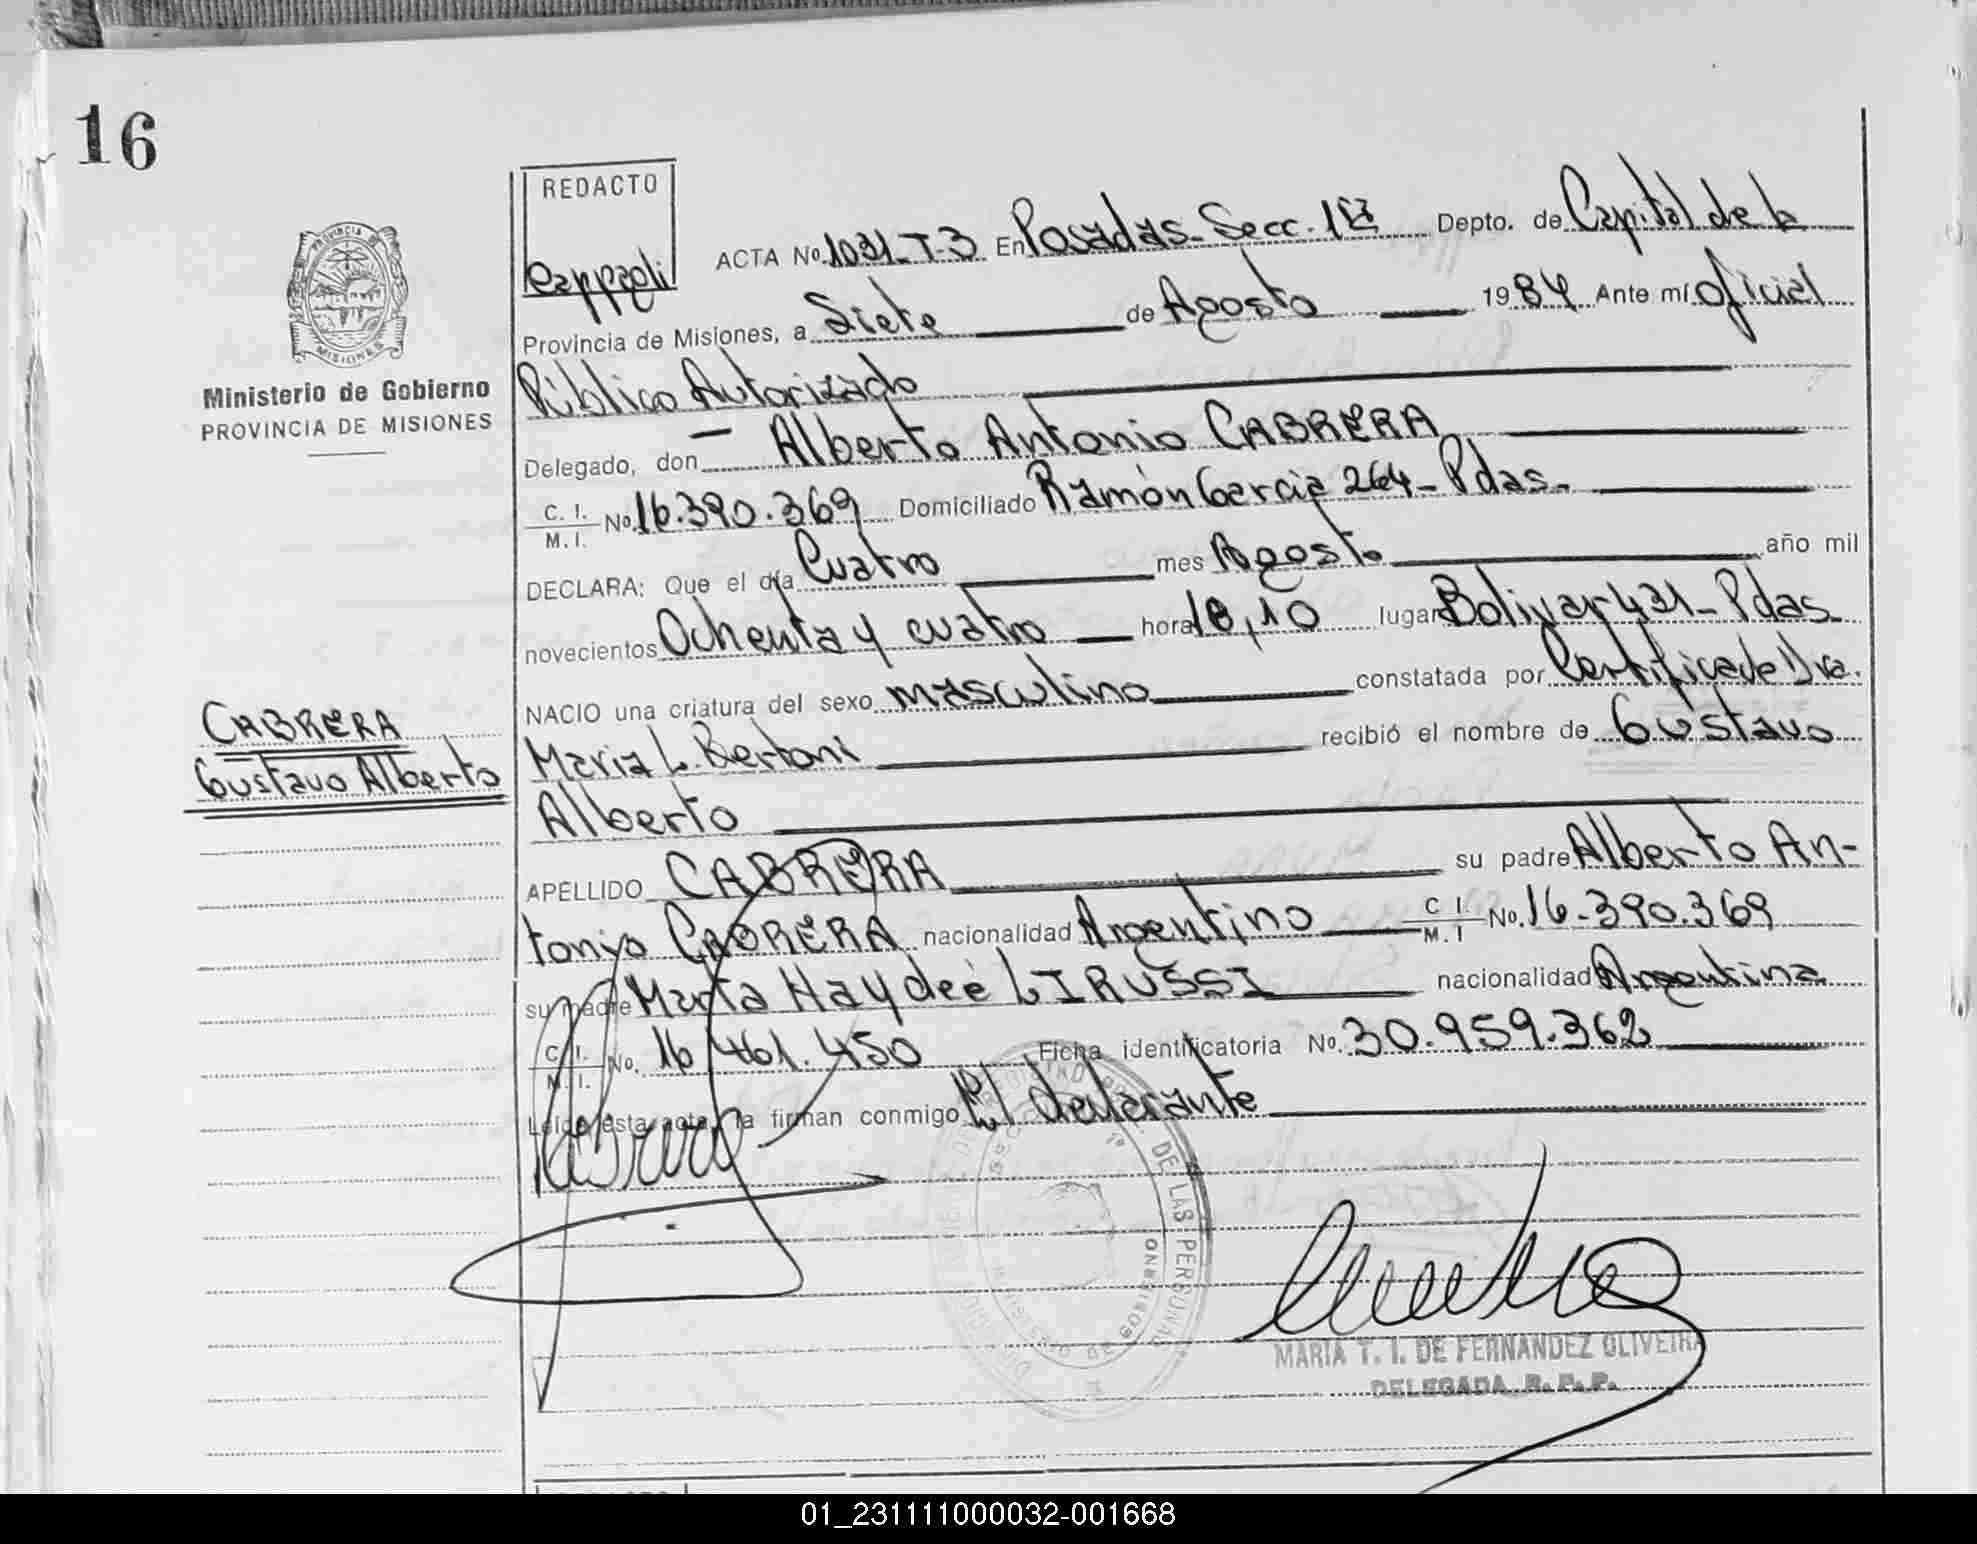 16
REDACTO
Rappagli
PROVINCIA DE
MISIONES
Ministerio de Gobierno
PROVINCIA DE MISIONES
ACTA No. 1031-T-3 En Posadas-Secc. 1ª Depto. de Capital de la
Provincia de Misiones, a Siete de Agosto 1984 Ante mí Oficial
Público Autorizado
Delegado, don - Alberto Antonio CABRERA
C. I.
M. I. No. 16.390.369 Domiciliado Ramón Garcia 264-Pdas-
DECLARA: Que el día Cuatro mes Agosto año mil
novecientos Ochenta y cuatro hora 18,10 lugar Bolivar 431-Pdas
NACIO una criatura del sexo masculino constatada por Certificado Dra.
Maria L. Bertoni recibió el nombre de Gustavo
Alberto
CABRERA
Gustavo Alberto
APELLIDO CABRERA su padre Alberto An-
tonio CABRERA nacionalidad Argentino C. I. M. I No. 16-390.369
su madre Marta Haydeé LIRUSSI nacionalidad Argentina
C. I.
M. I. No. 16 461.450 Ficha identificatoria No. 30.959.362
Leída esta acta, la firman conmigo El declarante
Cabrera
DE LAS PERSONAS
MARIA T. I. DE FERNANDEZ OLIVEIRA
DELEGADA R. P. P.
01_231111000032-001668